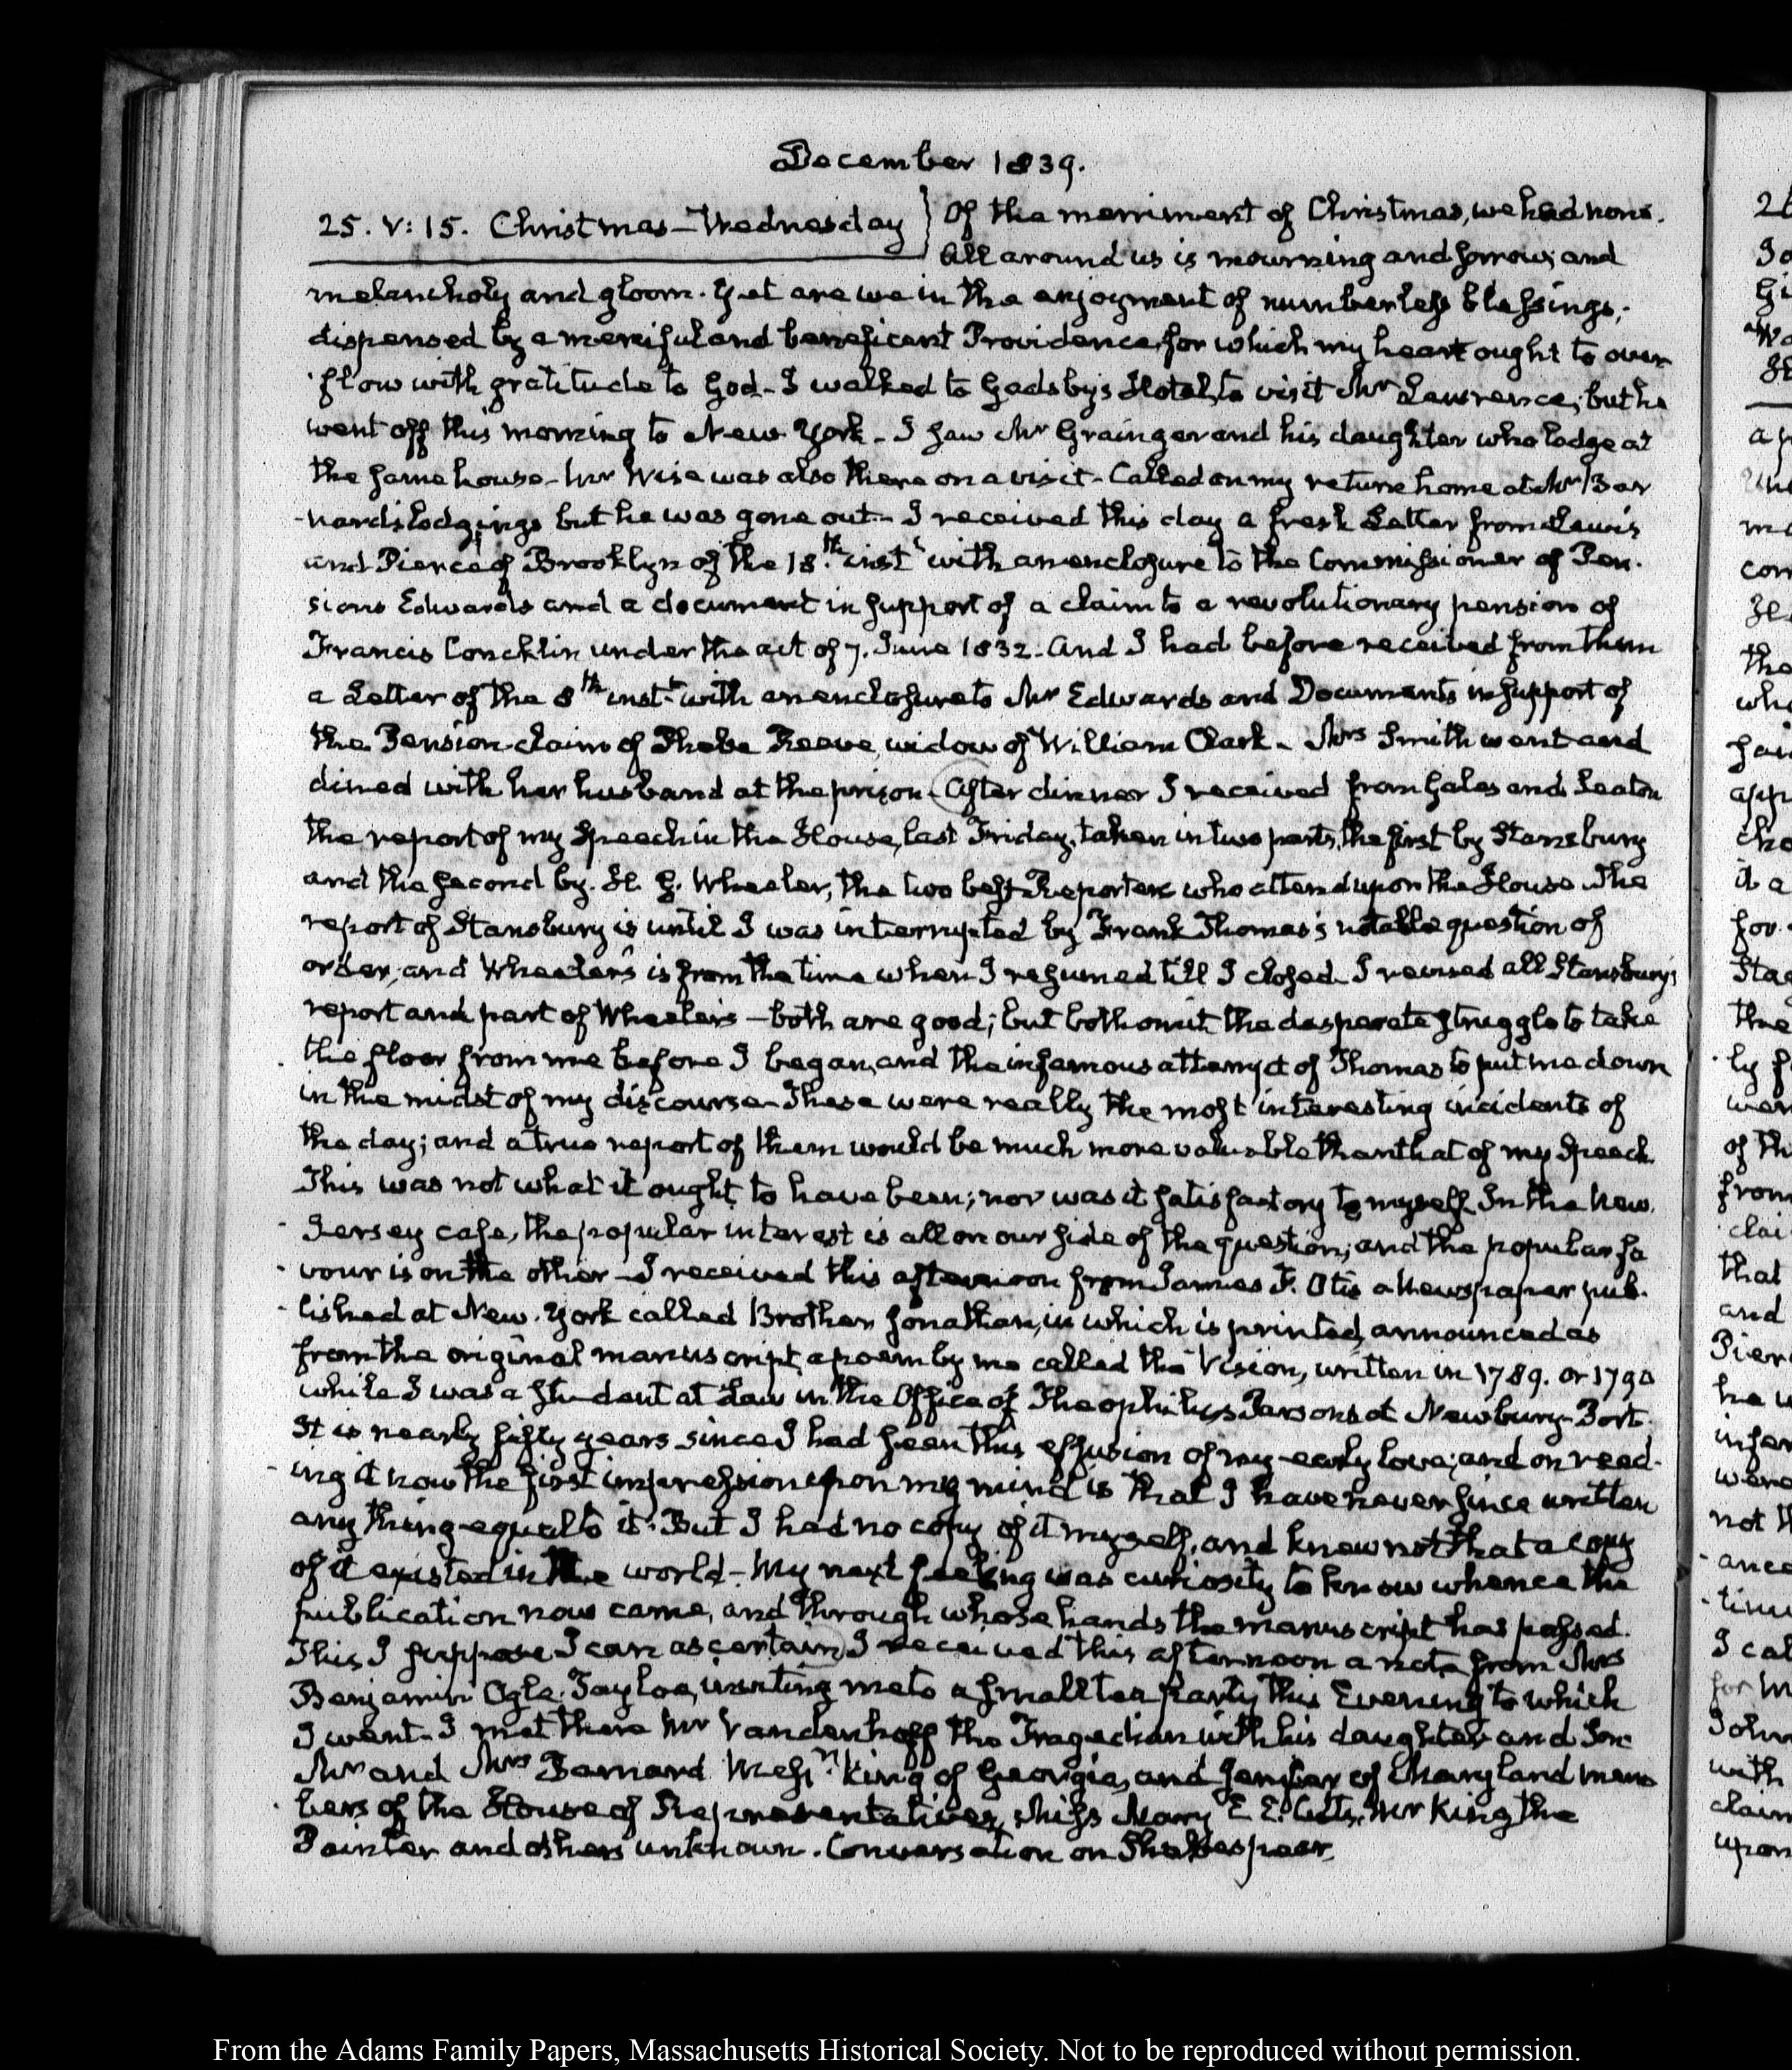 December 1839.
25. V: 15. Christmas - Wednesday } Of the merriment of Christmas, we had none.
All around us is mourning and sorrow; and
melancholy and gloom. Yet are we in the enjoyment of numberless blessings,
dispensed by a merciful and beneficent Providence, for which my heart ought to over
flow with gratitude to God - I walked to Gadsby's Hotel, to visit Mr Lawrence; but he
went off this morning to New York - I saw Mr Grainger and his daughter who lodge at
the same house - Mr Wise was also there on a visit - Called on my return home at Mr Bar
-nard's lodgings but he was gone out - I received this day a fresh Letter from Lewis
and Pierce of Brooklyn of the 18.th inst.t with an enclosure to the Commissioner of Pen-
sions Edwards and a document in support of a claim to a revolutionary pension of
Francis Concklin under the act of 7. June 1832 - And I had before received from them
a Letter of the 8th inst.t with an enclosure to Mr Edwards and Documents in support of
the Pension claim of Phebe Reeve, widow of William Clark - Mrs Smith went and
dined with her husband at the prison - After dinner I received from Gales and Seaton
the report of my Speech in the House, last Friday, taken in two parts, the first by Stansbury
and the second by H. G. Wheeler, the two best Reporters who attend upon the House. The
report of Stansbury is until I was interrupted by Frank Thomas's notable question of
order, and Wheeler's is from the time when I resumed till I closed - I revised all Stansbury's
report and part of Wheeler's - both are good; but both omit the desperate struggle to take
the floor from me before I began, and the infamous attempt of Thomas to put me down
in the midst of my discourse - These were really the most interesting incidents of
the day; and a true report of them would be much more valuable than that of my Speech.
This was not what it ought to have been; nor was it satisfactory to myself. In the New
Jersey case, the popular interest is all on our side of the question; and the popular fa
vour is on the other - I received this afternoon from James F. Otis a Newspaper pub-
lished at New-York called Brother Jonathan, in which is printed, announced as
from the original manuscript, a poem by me called the Vision, written in 1789. or 1790
while I was a student at Law in the Office of Theophilus Parsons at Newbury-Port.
It is nearly fifty years since I had seen this effusion of my early love; and on read-
ing it now the first impression upon my mind is that I have never since written
any thing equal to it. But I had no copy of it myself, and knew not that a copy
of it existed in the world - My next feeling was curiosity to know whence the
publication now came, and through whose hands the manuscript has passed.
This I suppose I can ascertain I received this afternoon a note from Mrs
Benjamin Ogle Tayloe, inviting me to a small tea party this Evening to which
I went - I met there Mr Vandenhoff the Tragedian with his daughter and Son
Mr and Mrs Barnard Mess.rs King of Georgia, and Jenifer of Maryland mem
bers of the House of Representatives, Miss Mary E E. Cutts, Mr King the
Painter and others unknown. Conversation on Shakespear.
From the Adams Family Papers, Massachusetts Historical Society. Not to be reproduced without permission.